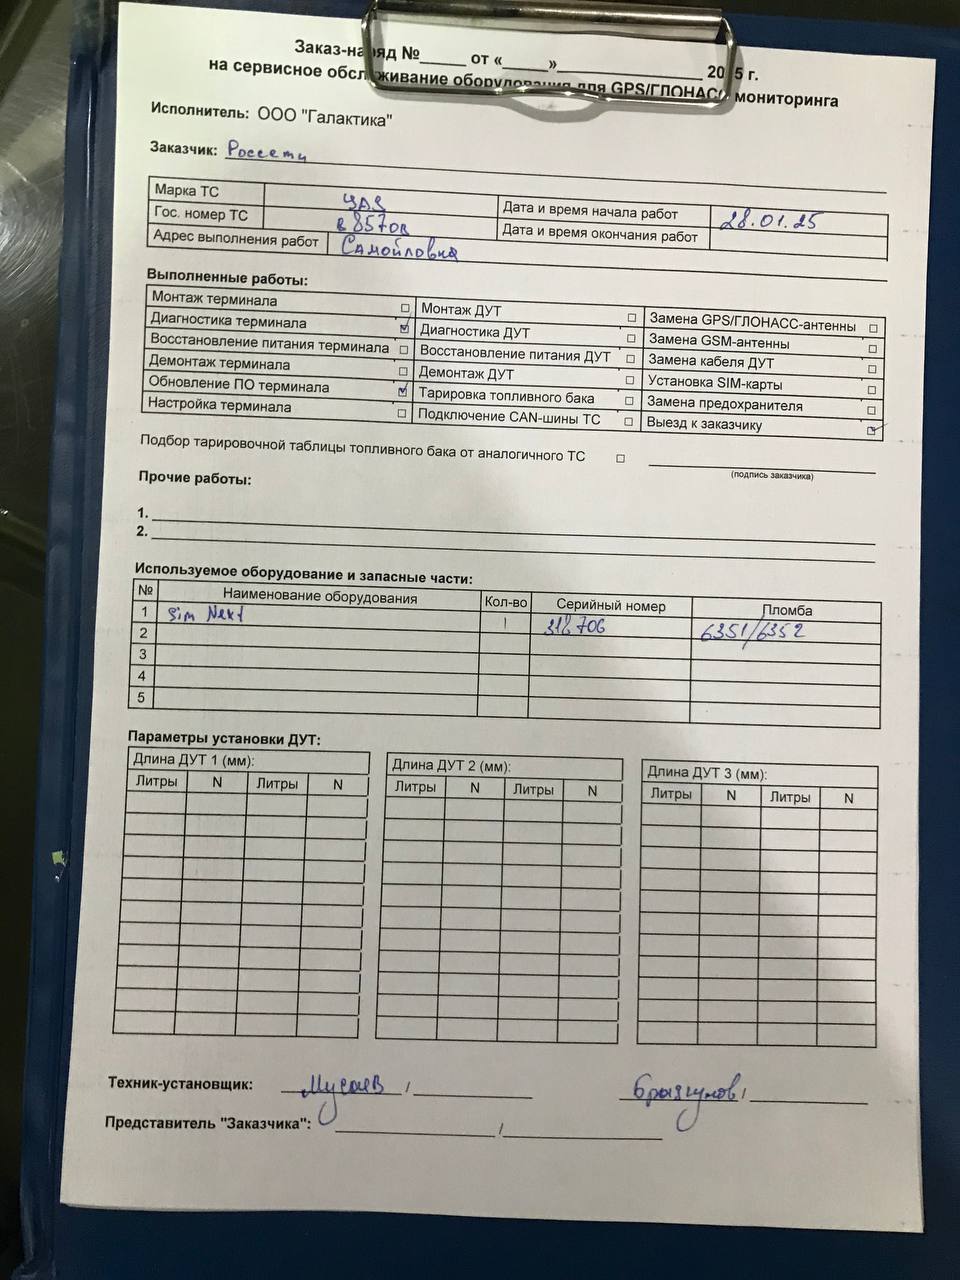 Заказ-наряд №_____ от «_____»__________________ 20 5 г.
на сервисное обслуживание оборудования для GPS/ГЛОНАСС мониторинга
Исполнитель: ООО "Галактика"
Заказчик: Россети
Марка ТС УАЗ Дата и время начала работ 28.01.25
Гос. номер ТС в857ов Дата и время окончания работ
Адрес выполнения работ Самойловка
Выполненные работы:
Монтаж терминала ☐ Монтаж ДУТ ☐ Замена GPS/ГЛОНАСС-антенны ☐
Диагностика терминала ☑ Диагностика ДУТ ☐ Замена GSM-антенны ☐
Восстановление питания терминала ☐ Восстановление питания ДУТ ☐ Замена кабеля ДУТ ☐
Демонтаж терминала ☐ Демонтаж ДУТ ☐ Установка SIM-карты ☐
Обновление ПО терминала ☑ Тарировка топливного бака ☐ Замена предохранителя ☐
Настройка терминала ☐ Подключение CAN-шины ТС ☐ Выезд к заказчику ☑
Подбор тарировочной таблицы топливного бака от аналогичного ТС ☐
(подпись заказчика)
Прочие работы:
1.
2.
Используемое оборудование и запасные части:
№ Наименование оборудования Кол-во Серийный номер Пломба
1 Sim Next 1 318706 6351/6352
2
3
4
5
Параметры установки ДУТ:
Длина ДУТ 1 (мм): Длина ДУТ 2 (мм): Длина ДУТ 3 (мм):
Литры N Литры N Литры N Литры N Литры N Литры N
Техник-установщик: Мусаев / Брызгунов /
Представитель "Заказчика": /